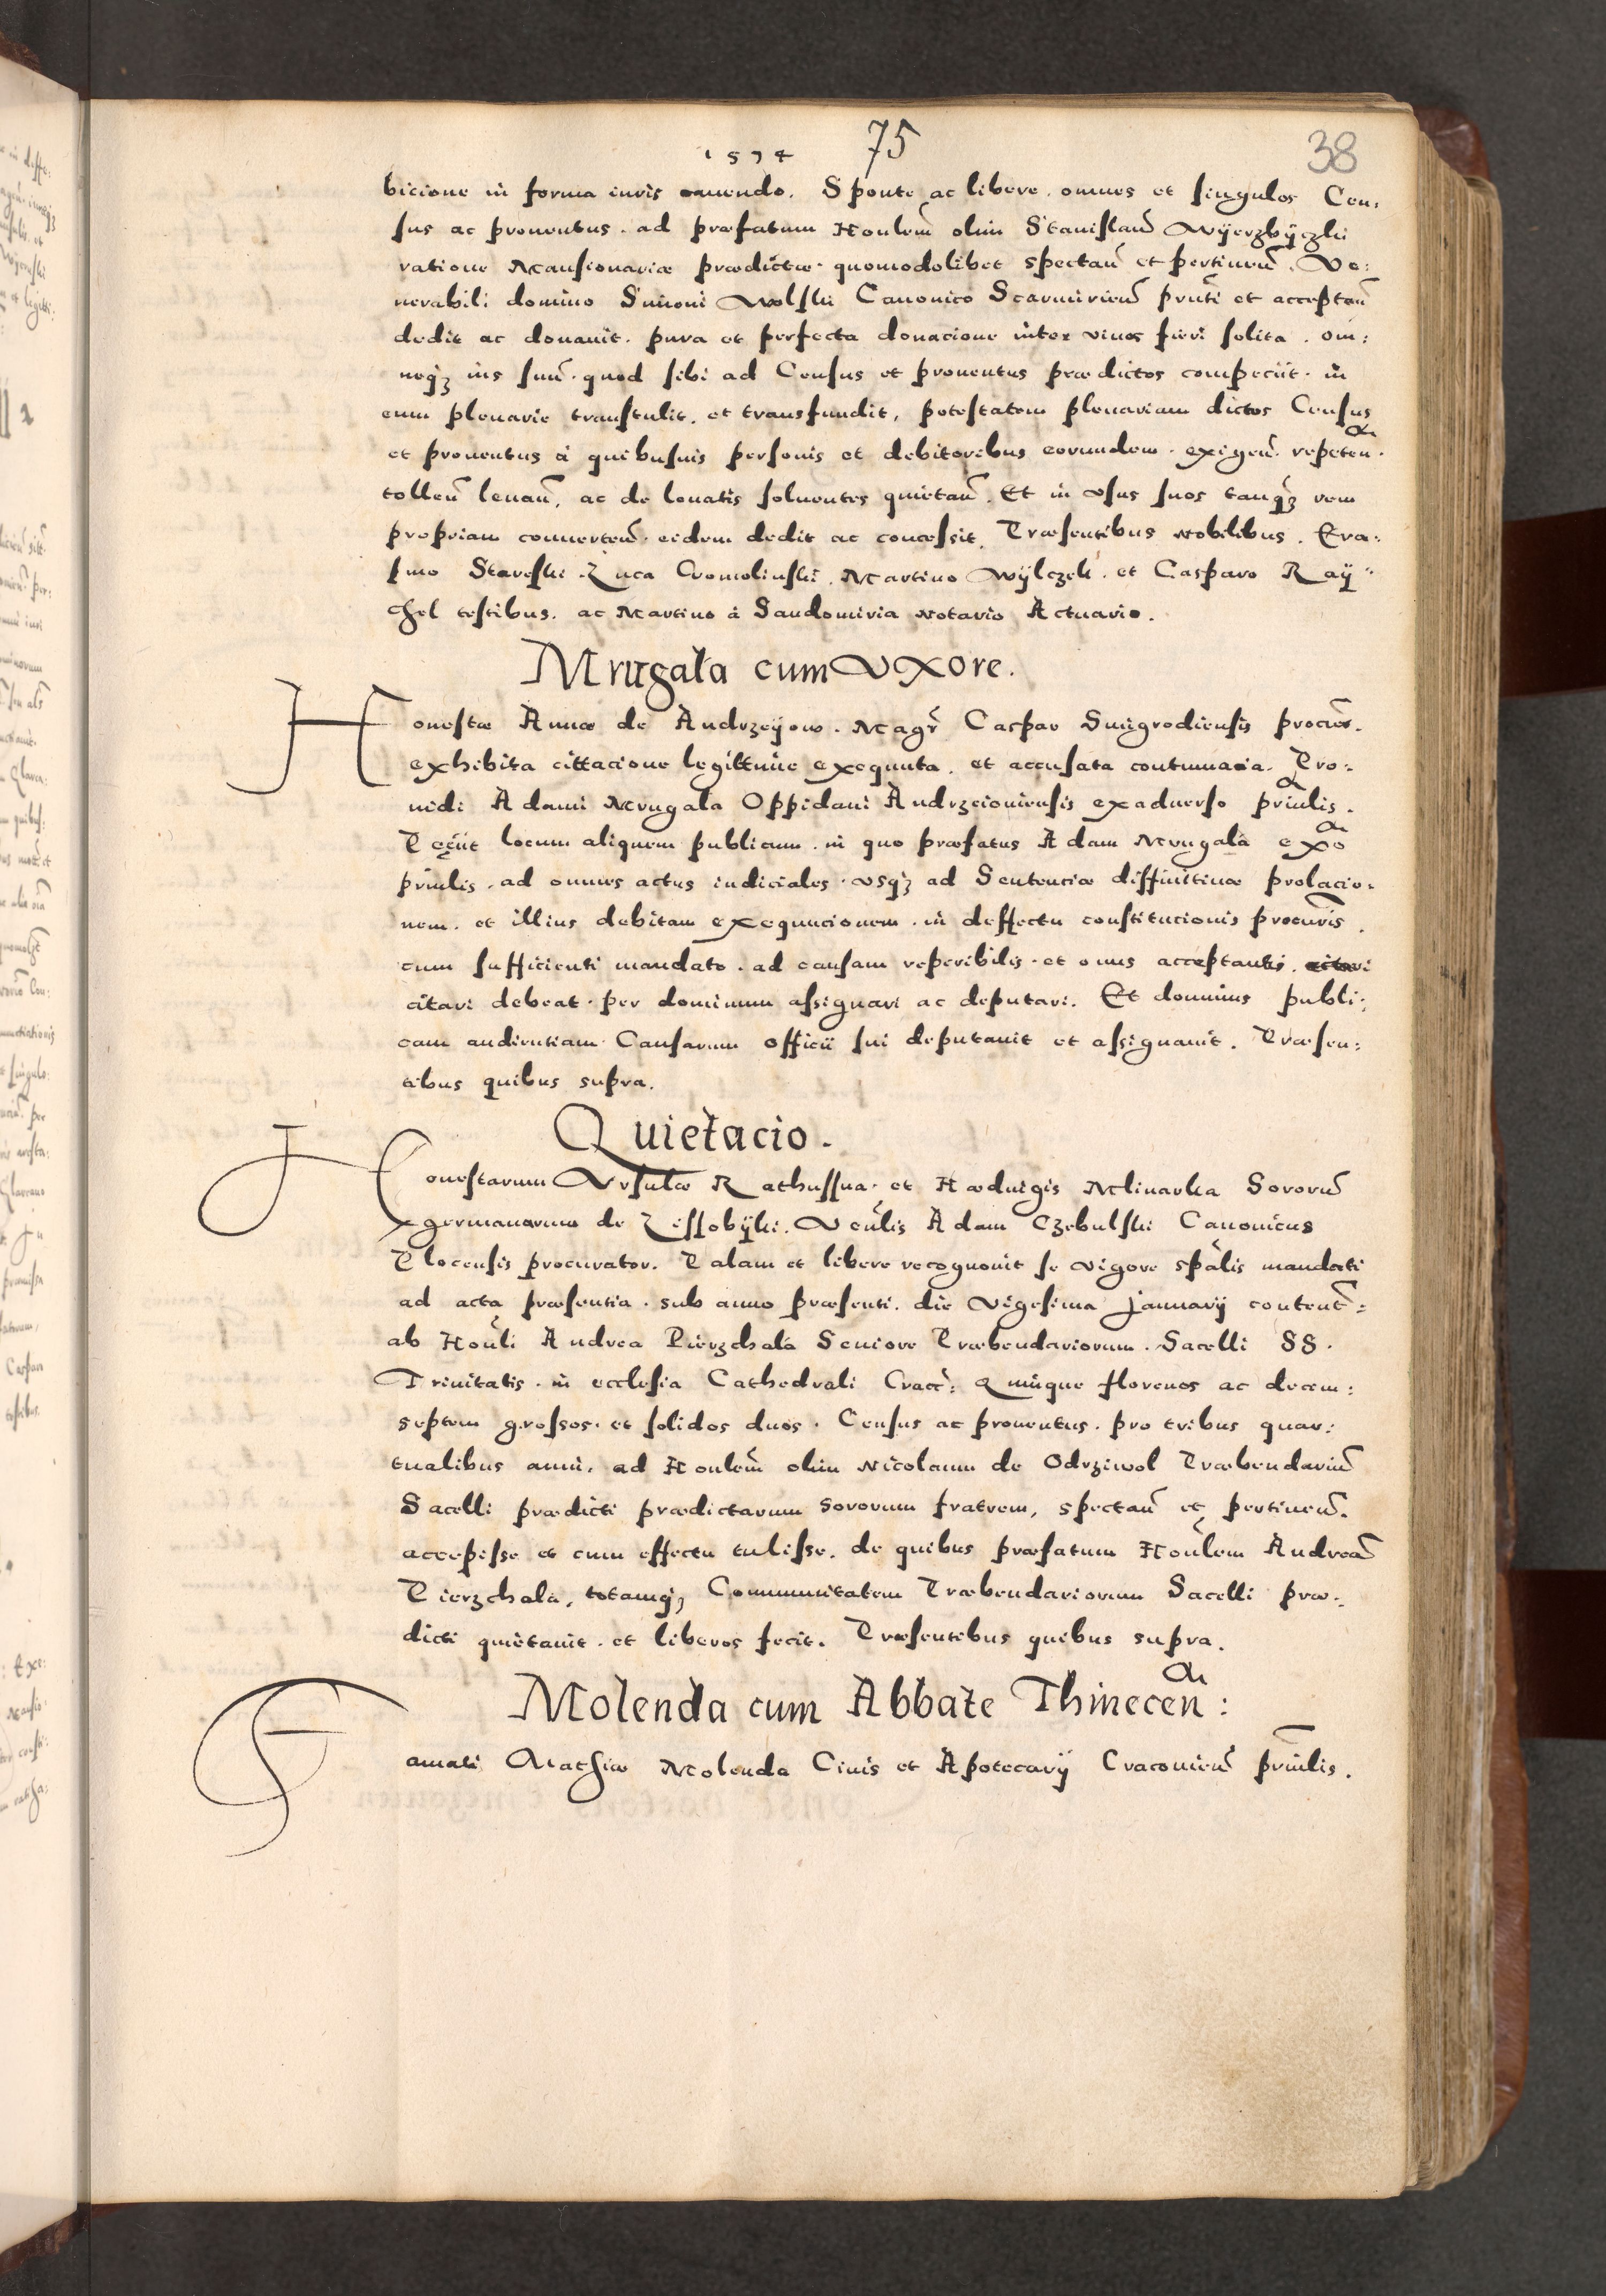 1574 75 38
bicione in forma iuris cauendo. Sponte ac libere. omnes et singulos Cen:
sus ac prouentus. ad præfatum Honlem̄ olim Stanislaū Wÿerzbÿczki
ratione Mansionariæ prædictæ. quomodolibet spectan̄ et pertinen̄. Ve:
nerabili domino Simoni Wolski Canonico Scarmirien̄ prn̄ti et acceptan̄
dedit ac donauit. pura et perfecta donacione inter viuos fieri solita. om:
neqʒ ius suū. quod sibi ad Census et prouentus prædictos compeciit. in
eum plenarie transtulit. et transfundit, potestatem plenariam dictos Census
et prouentus à quibusuis personis et debitoribus eorundem. exigen̄. repeten.
tollen̄ leuan̄, ac de leuatis soluentes quietan̄. Et in vsus suos tanqʒ rem
propriam conuerten̄. eidem dedit ac concessit. Præsentibus Nobilibus. Era:
smo Stareski. Luca Cromolinski. Martino Wÿlczek. et Casparo Raÿ:
chel testibus. ac Martino à Sandomiria Notario Actuario.
Mrugala cum Vxore.
Honestæ Annæ de Andrzeÿow. Magr̄ Caspar Smigrodiensis procur̄.
exhibita cittacione legittime exequuta. et accusata contumacia. Pro:
uidi Adami Mrugala Oppidani Andrzeiouiensis exaduerso prin̄lis.
Peciit locum aliquem publicum. in quo præfatus Adam Mrugala exo
prin̄lis. ad omnes actus iudiciales. vsqʒ ad Sentenciæ diffinitiuæ prolacio:
nem. et illius debitam exequucionem. in deffectu constitucionis procur̄is.
cum sufficienti mandato. ad causam reperibilis. et onus acceptantis.
citari debeat. per dominum assignari ac deputari. Et dominus publi:
cam audientiam Causarum officii sui deputauit et assignauit. Præsen:
tibus quibus supra.
Quietacio.
Honestarum Vrsulæ Rathussna. et Hæduigis Mlinarka Sororū
germanarum de Lissobÿki. Ven̄lis Adam Czebulski Canonicus
Plocensis procurator. Palam et libere recognouit se vigore spālis mandati
ad acta præsentia. sub anno præsenti. die vigesima Januarÿ content̄:
ab Hon̄li Andrea Pierzchala Seniore Præbendariorum. Sacelli SS.
Trinitatis. in ecclesia Cathedrali Cracc̄: Quinque florenos ac decem:
septem grossos. et solidos duos. Census ac prouentus. pro tribus quar:
tualibus anni. ad Honlem̄ olim Nicolaum de Odrziwol Præbendariū
Sacelli prædicti prædictarum sororum fratrem, spectan̄ et pertinen̄.
accepisse et cum effectu tulisse. de quibus præfatum Hon̄lem Andreā
Pierzchala, totamqʒ Communitatem Præbendariorum Sacelli præ:
dicti quietauit. et liberos fecit. Præsentibus quibus supra.
Molenda cum Abbate Thinecen:
Famati Mathiæ Molenda Ciuis et Apotecarÿ Cracouien̄ prin̄lis.